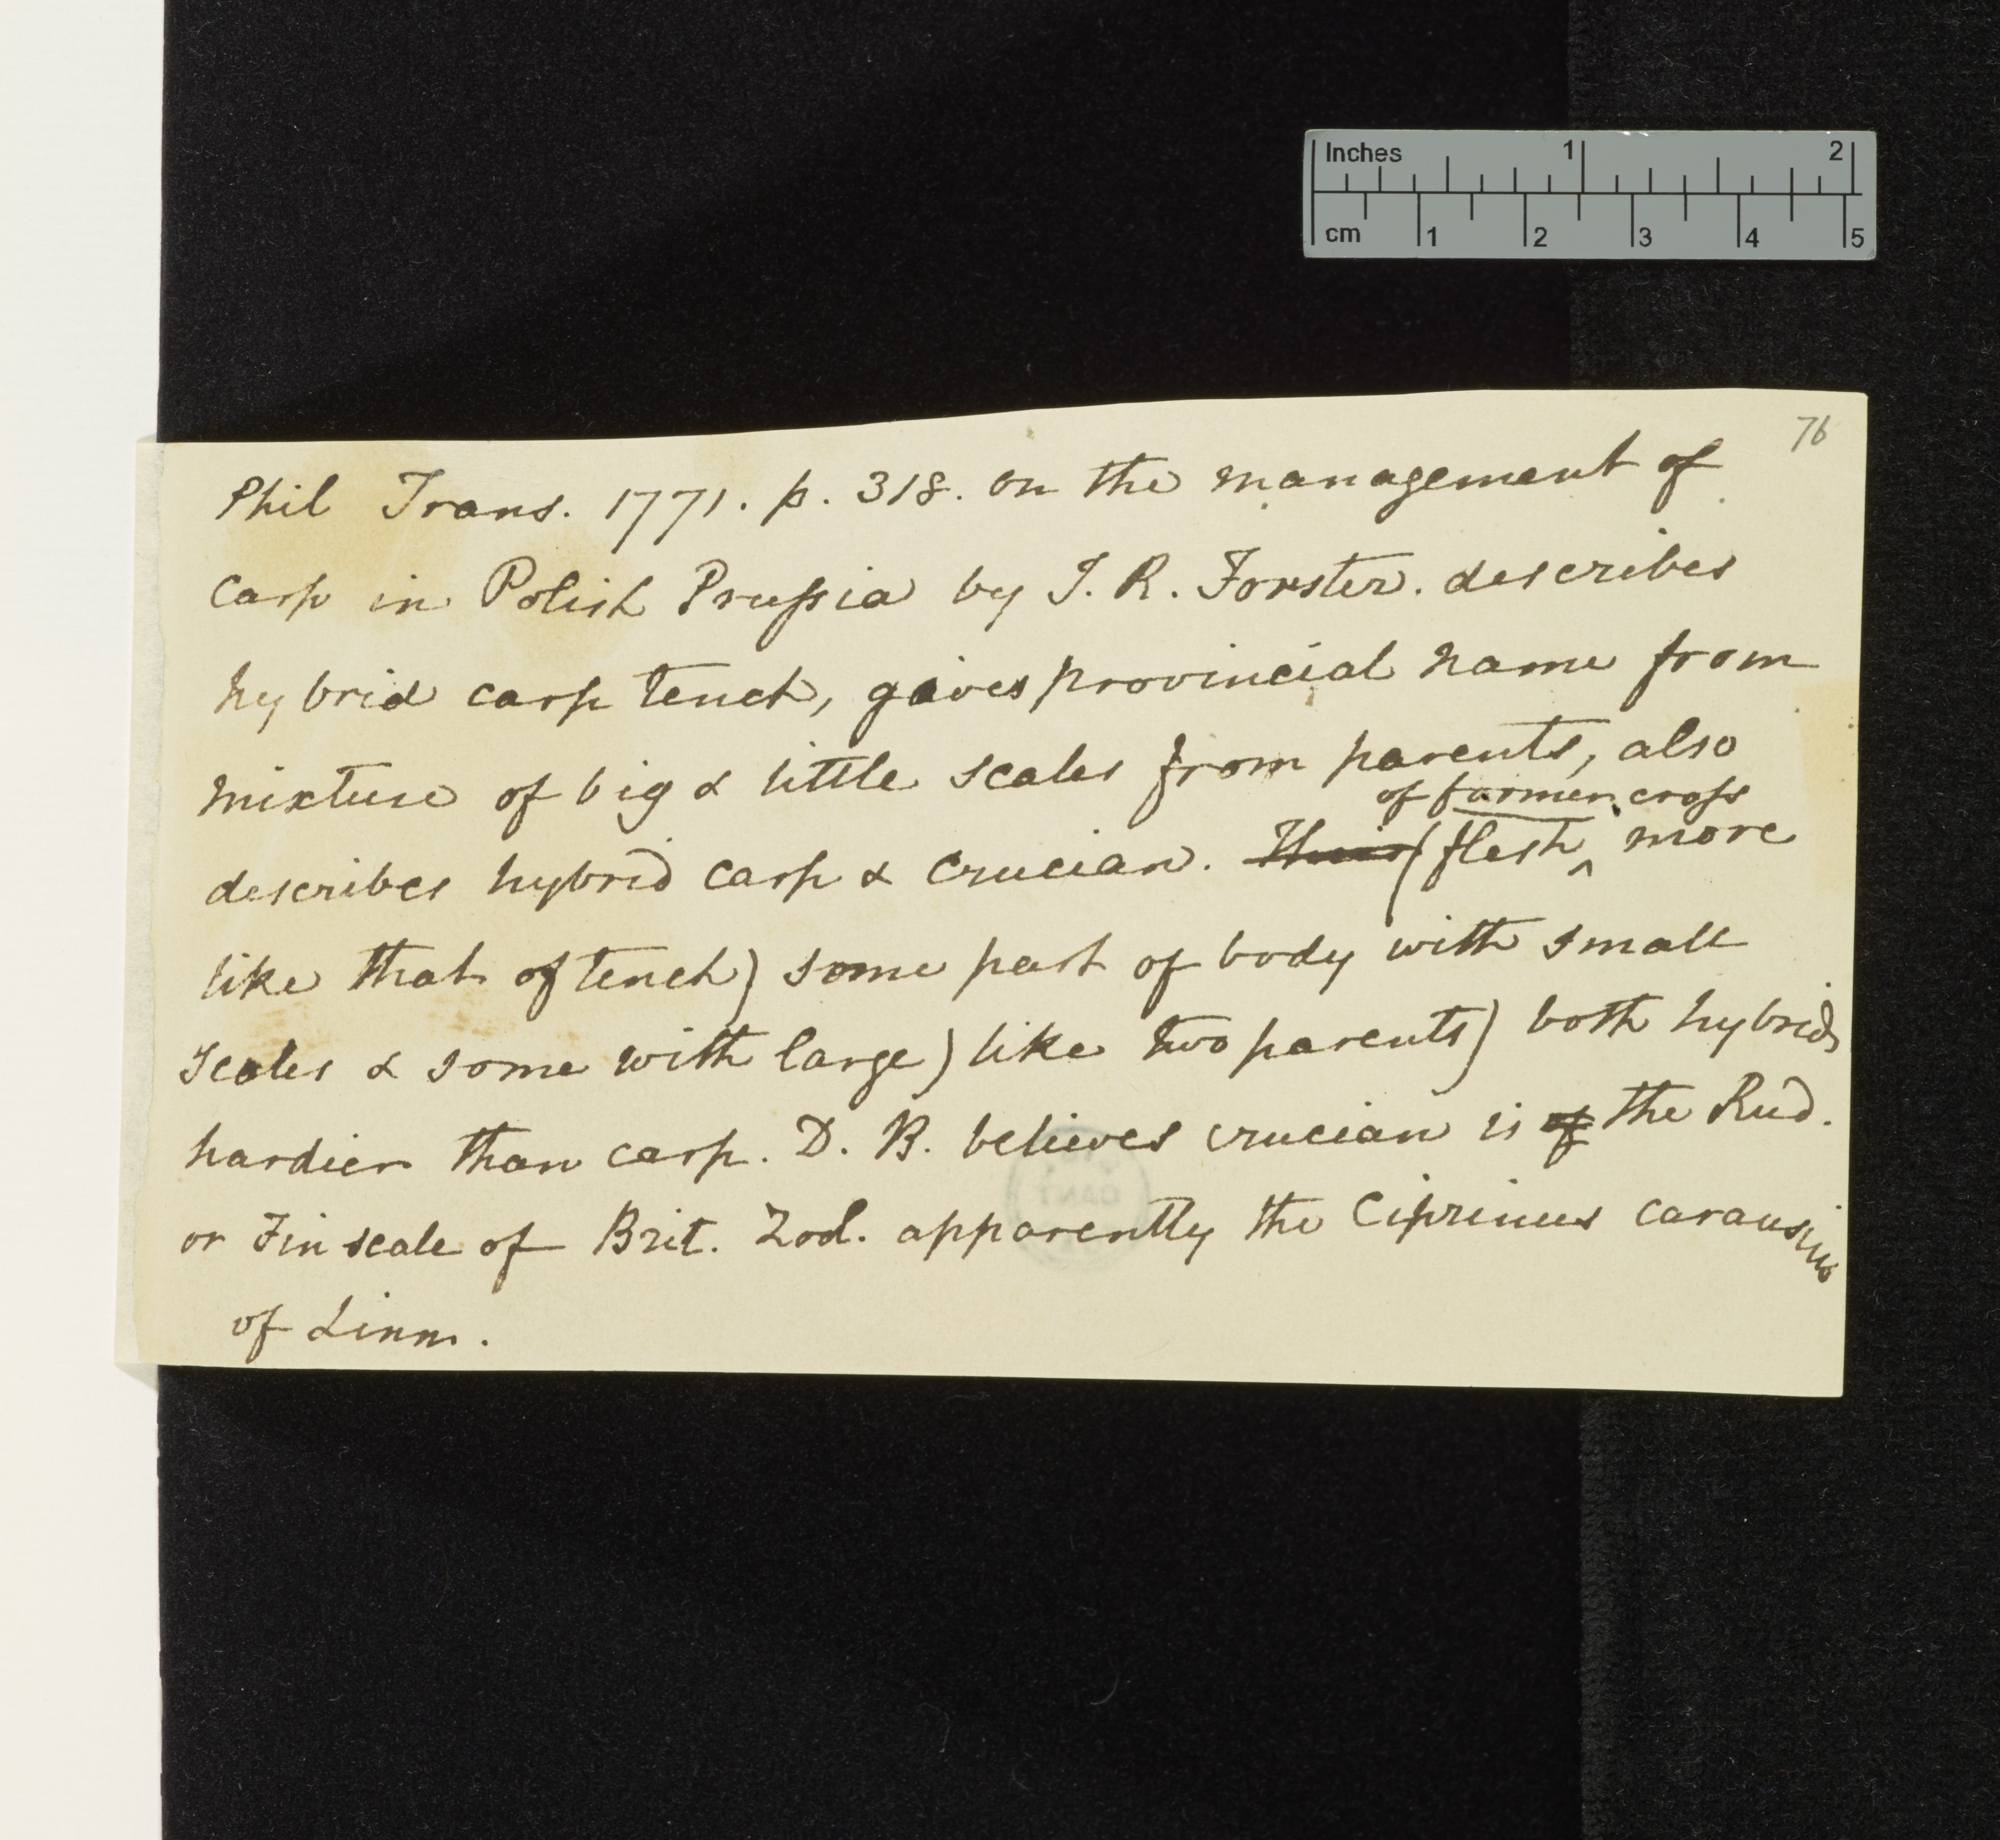 Inches 1 2
cm 1 2 3 4 5
76
Phil Trans. 1771. p. 318. On the management of
Carp in Polish Prussia by J. R. Forster. describes
hybrid carp tench, gives provincial name from
mixture of big & little scales from parents, also
of former cross
describes hybrid carp & crucian. Their (flesh ^ more
like that of tench) some part of body with small
scales & some with large) like two parents) both hybrids
hardier than carp. D. B. believes crucian is of the Rud.
or Finscale of Brit. Zool. apparently the Ciprinus carausius
of Linn.